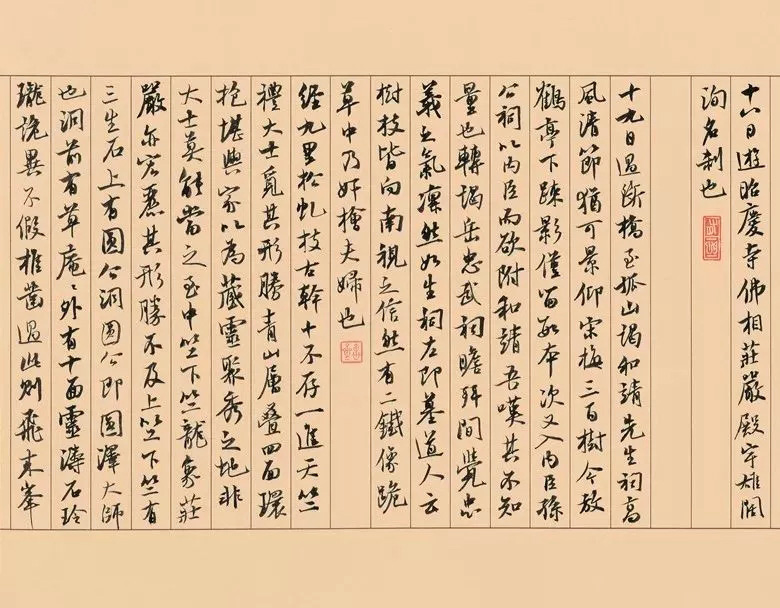 十八日遊昭慶寺佛相莊嚴殿宇雄闊
洵名刹也
十九日過斷橋至孤山謁和靖先生祠高
風清節猶可景仰宋梅三百樹今放
鶴亭下疎影僅留數本次又入內臣孫
公祠以內臣而欲附和靖吾嘆其不知
量也轉謁岳忠武祠瞻拜間覺忠
義之氣凜然如生祠左即墓道人云
樹枝皆向南視之信然有二鐵像跪
草中乃奸檜夫婦也
經九里松虬枝古幹十不存一進天竺
禮大士覓其形勝青山層疊四面環
抱堪輿家以為藏靈聚秀之地非
大士莫能當之至中竺下竺龍象莊
嚴亦宏麗其形勝不及上竺下竺有
三生石上有圓公洞圓公即圓澤大師
也洞前有草庵〻外有十面靈濤石玲
瓏詭異不假椎鑿過此則飛來峯